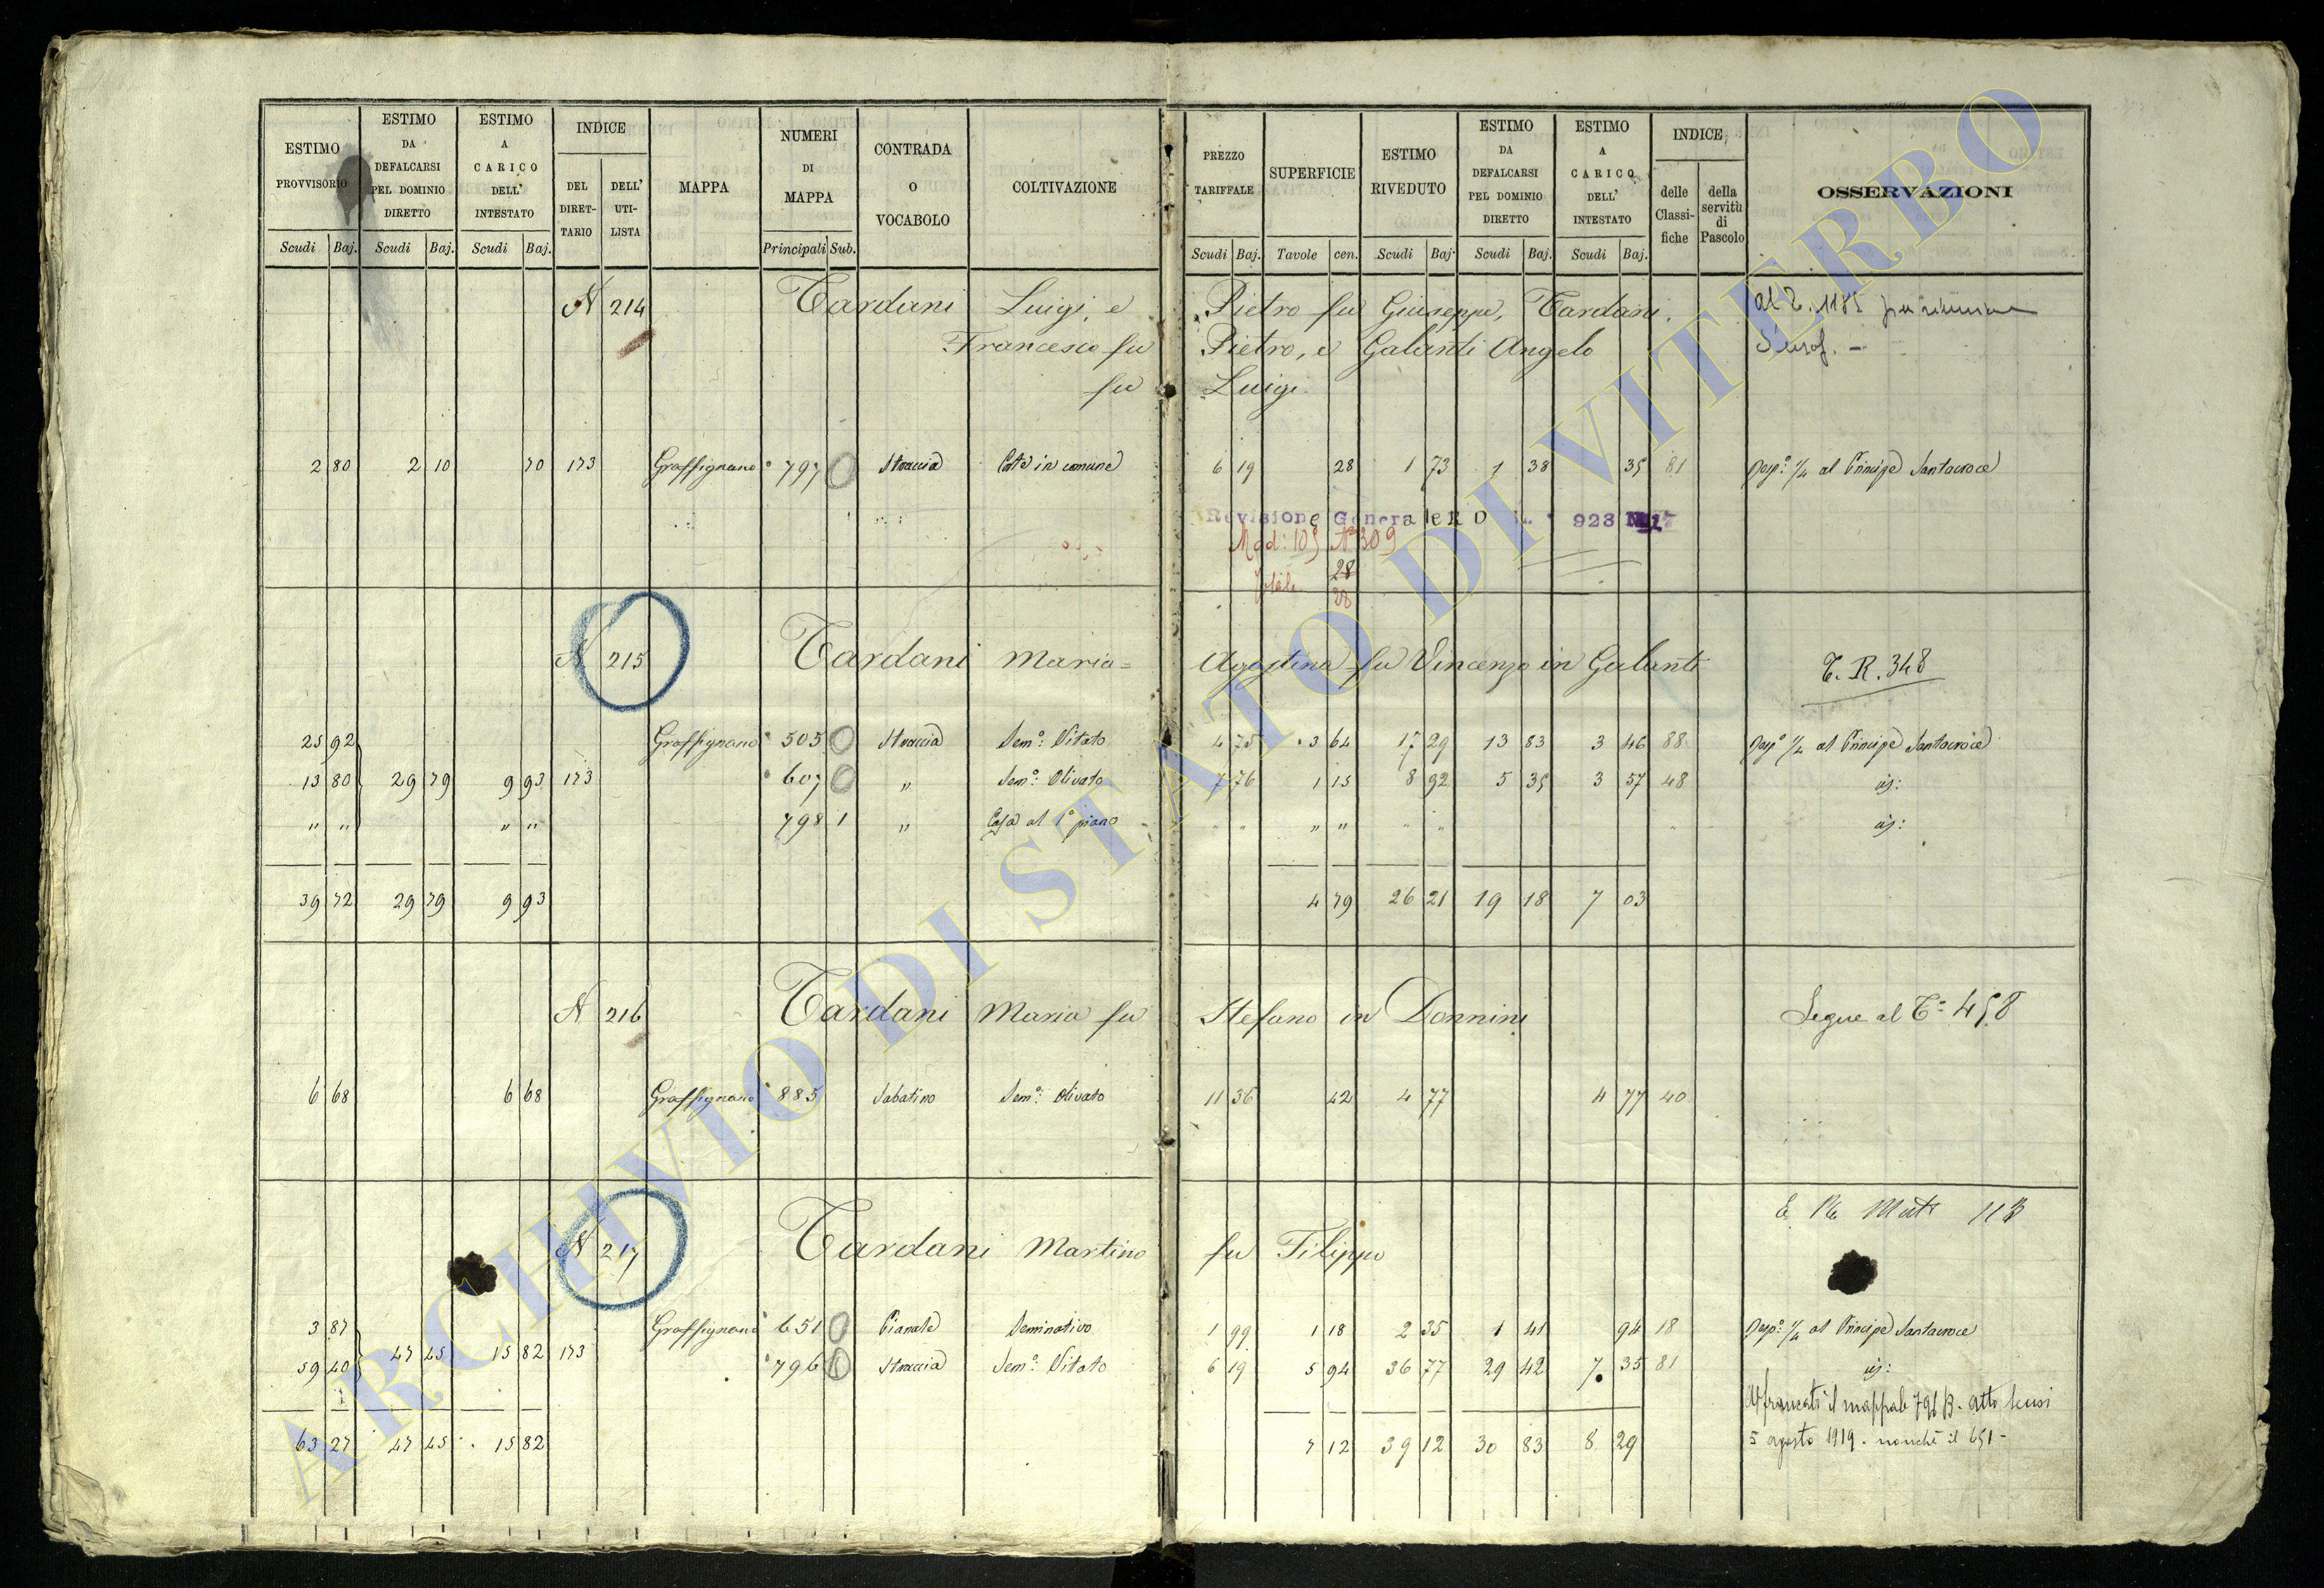 ESTIMO PROVVISORIO | ESTIMO DA DEFALCARSI PEL DOMINIO DIRETTO | ESTIMO A CARICO DELL' INTESTATO | INDICE DEL DIRETTARIO | DELL' UTILISTA | MAPPA | NUMERI DI MAPPA | CONTRADA O VOCABOLO | COLTIVAZIONE | PREZZO TARIFFALE | SUPERFICIE | ESTIMO RIVEDUTO | ESTIMO DA DEFALCARSI PEL DOMINIO DIRETTO | ESTIMO A CARICO DELL' INTESTATO | INDICE delle Classifiche | della servitù di Pascolo | OSSERVAZIONI
Scudi Baj. Scudi Baj. Scudi Baj. Principali Sub. Scudi Baj. Tavole cen. Scudi Baj. Scudi Baj. Scudi Baj.
N 214 Tardani Luigi, e Pietro fu Giuseppe, Tardani al T. 1185 per riunione
Francesco fu Pietro, e Galanti Angelo
fu Luigi
2 80 2 10 70 173 Graffignano 797 Straccia Corte in comune 6 19 28 1 73 1 38 35 81 Risp.a 1/4 al Principe Santacroce
Revisione Generale R D L 928
Mod: 105 N 309
28
Totale 28
N 215 Tardani Maria= Agostina fu Vincenzo in Galanti T. R. 348
25 92 Graffignano 505 Straccia Sem.o Vitato 4 75 3 64 17 29 13 83 3 46 88 Risp.a 1/4 al Principe Santacroce
13 80 29 79 9 93 173 607 " Sem.o Olivato 7 76 1 15 8 92 5 35 3 57 48 id:
" " " " 798 1 " Casa al 1o piano " " " " " " id:
39 72 29 79 9 93 4 79 26 21 19 18 7 03
N 216 Tardani Maria fu Stefano in Donnini Segue al T.o 458
6 68 6 68 Graffignano 885 Sabatino Sem.o Olivato 11 36 42 4 77 4 77 40
N 217 Tardani Martino fu Filippo
3 87 Graffignano 651 Pianale Seminativo 1 99 1 18 2 35 1 41 94 18 Risp.a 1/4 al Principe Santacroce
59 40 47 45 15 82 173 796 Straccia Sem.o Vitato 6 19 5 94 36 77 29 42 7 35 81 id:
Affrancati il mappale 796 B. atto Scusi
63 27 47 45 15 82 7 12 39 12 30 83 8 29 5 agosto 1919. nonchè il 651-
ARCHIVIO DI STATO DI VITERBO